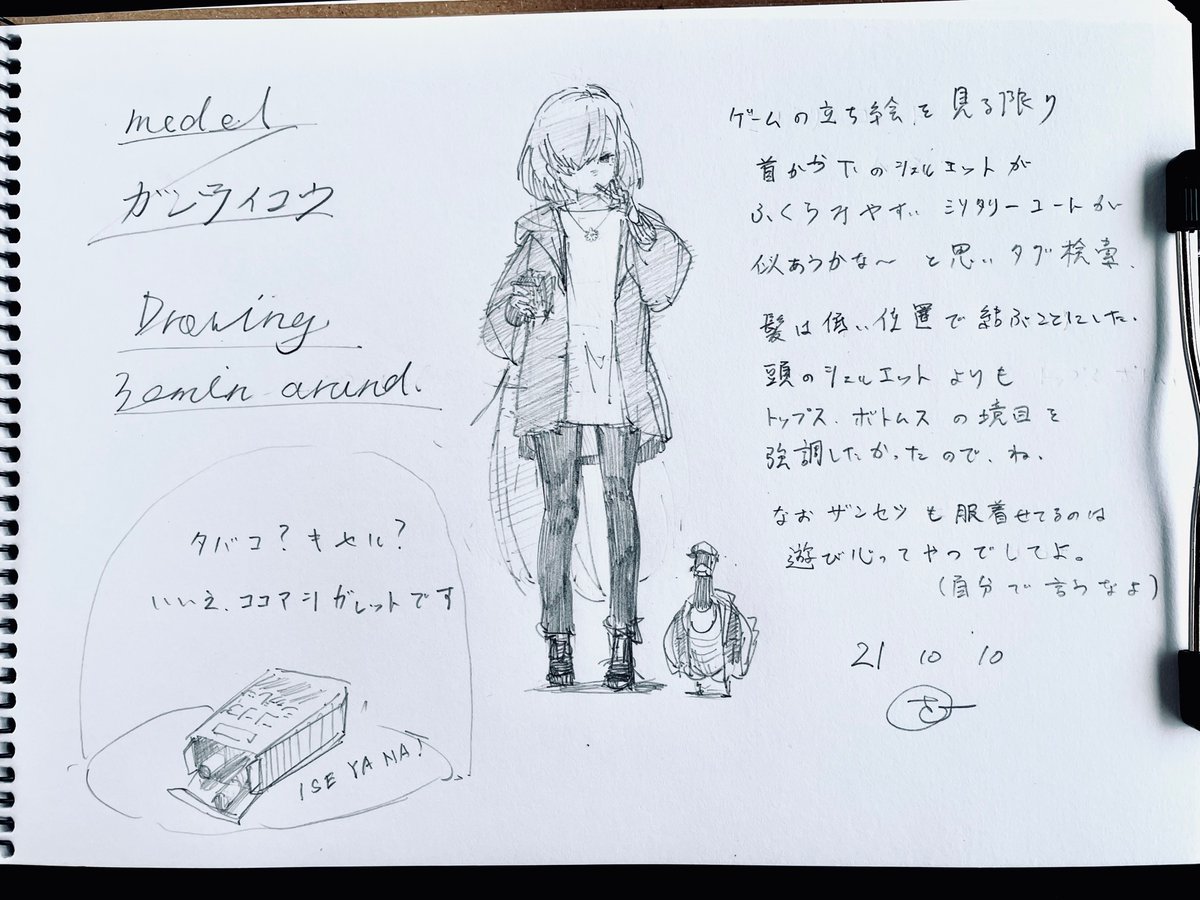 model
ガンライコウ
Drawing
30min arund.
タバコ?キセル?
いいえ、ココアシガレットです
ISE YA NA!
ゲームの立ち絵を見る限り
首から下のシルエットが
ふくらみやすいミリタリーコートが
似あうかな〜と思いタグ検索、
髪は低い位置で結ぶことにした、
頭のシルエットよりも
トップス、ボトムスの境目を
強調したかったので、ね、
なおザンセツも服着せてるのは
遊び心ってやつでしてよ。
(自分で言うなよ)
21 10 10